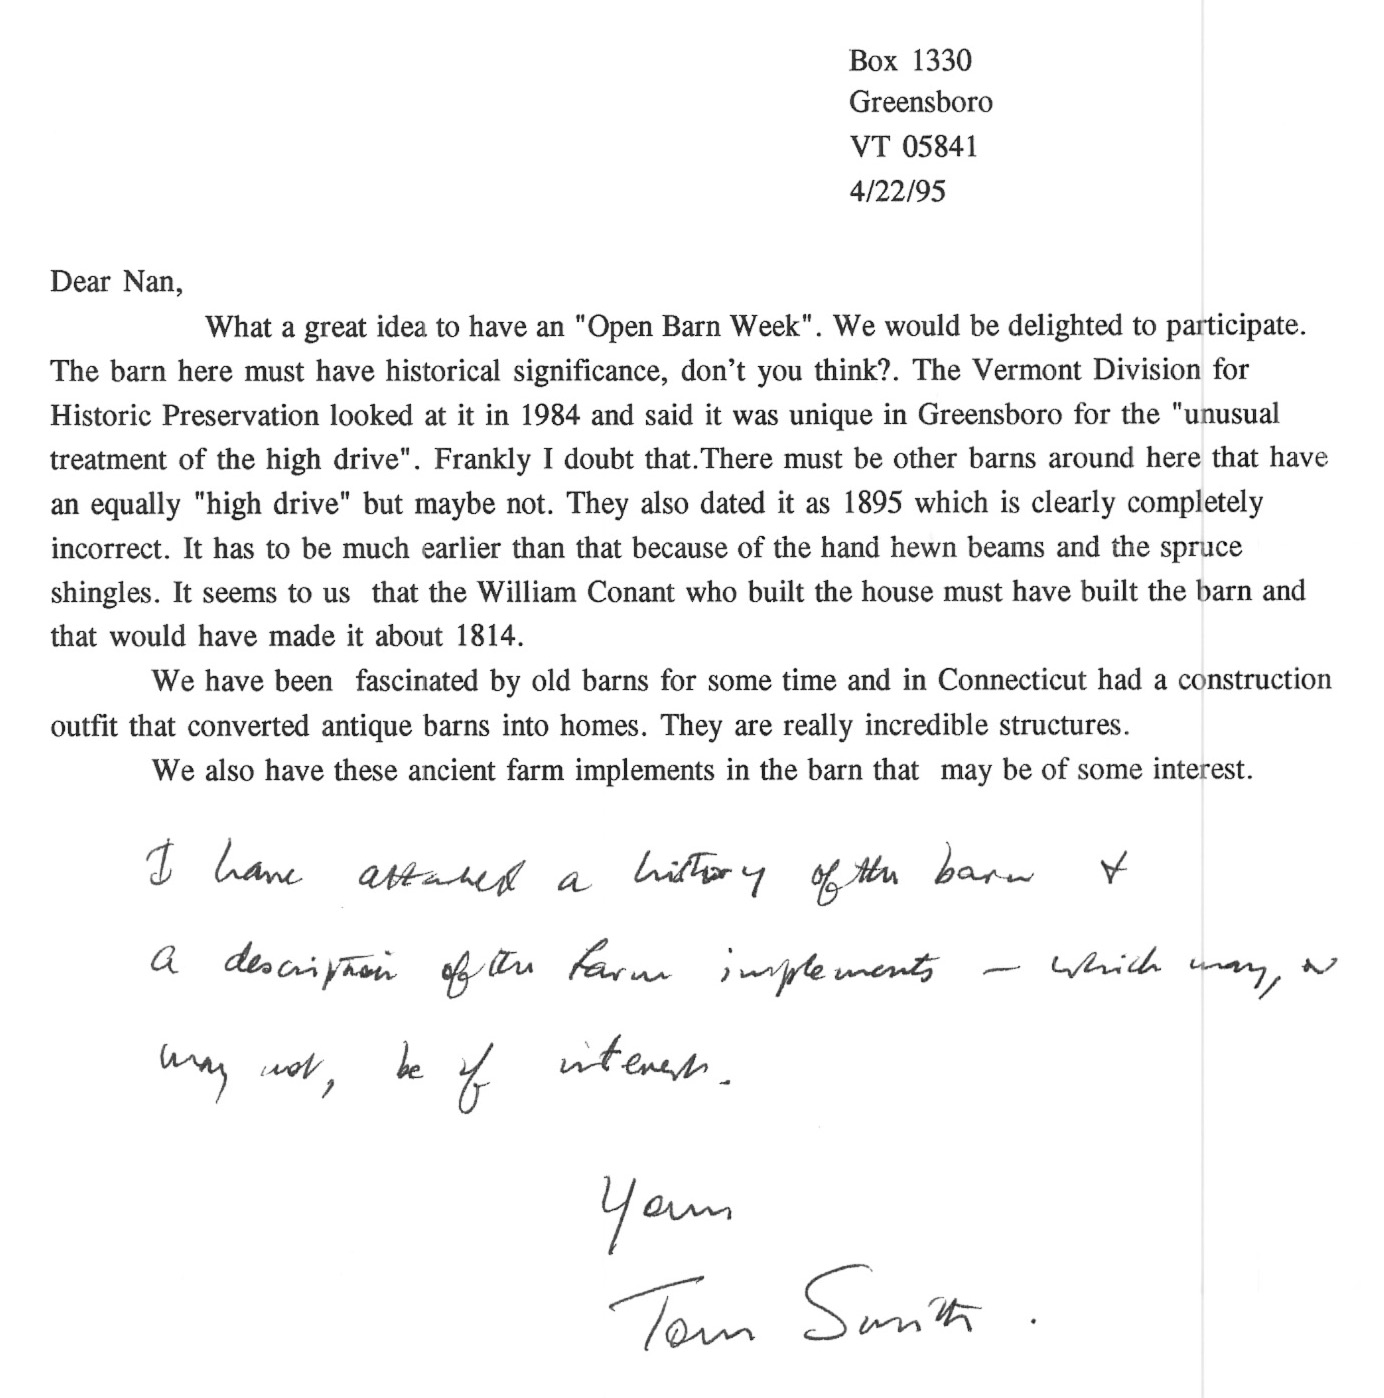 Box 1330
Greensboro
VT 05841
4/22/95
Dear Nan,
What a great idea to have an "Open Barn Week". We would be delighted to participate.
The barn here must have historical significance, don't you think?. The Vermont Division for
Historic Preservation looked at it in 1984 and said it was unique in Greensboro for the "unusual
treatment of the high drive". Frankly I doubt that.There must be other barns around here that have
an equally "high drive" but maybe not. They also dated it as 1895 which is clearly completely
incorrect. It has to be much earlier than that because of the hand hewn beams and the spruce
shingles. It seems to us that the William Conant who built the house must have built the barn and
that would have made it about 1814.
We have been fascinated by old barns for some time and in Connecticut had a construction
outfit that converted antique barns into homes. They are really incredible structures.
We also have these ancient farm implements in the barn that may be of some interest.
I have attached a history of the barn &
a description of the farm implements - which may, or
may not, be of interest.
Yours
Tom Smith.